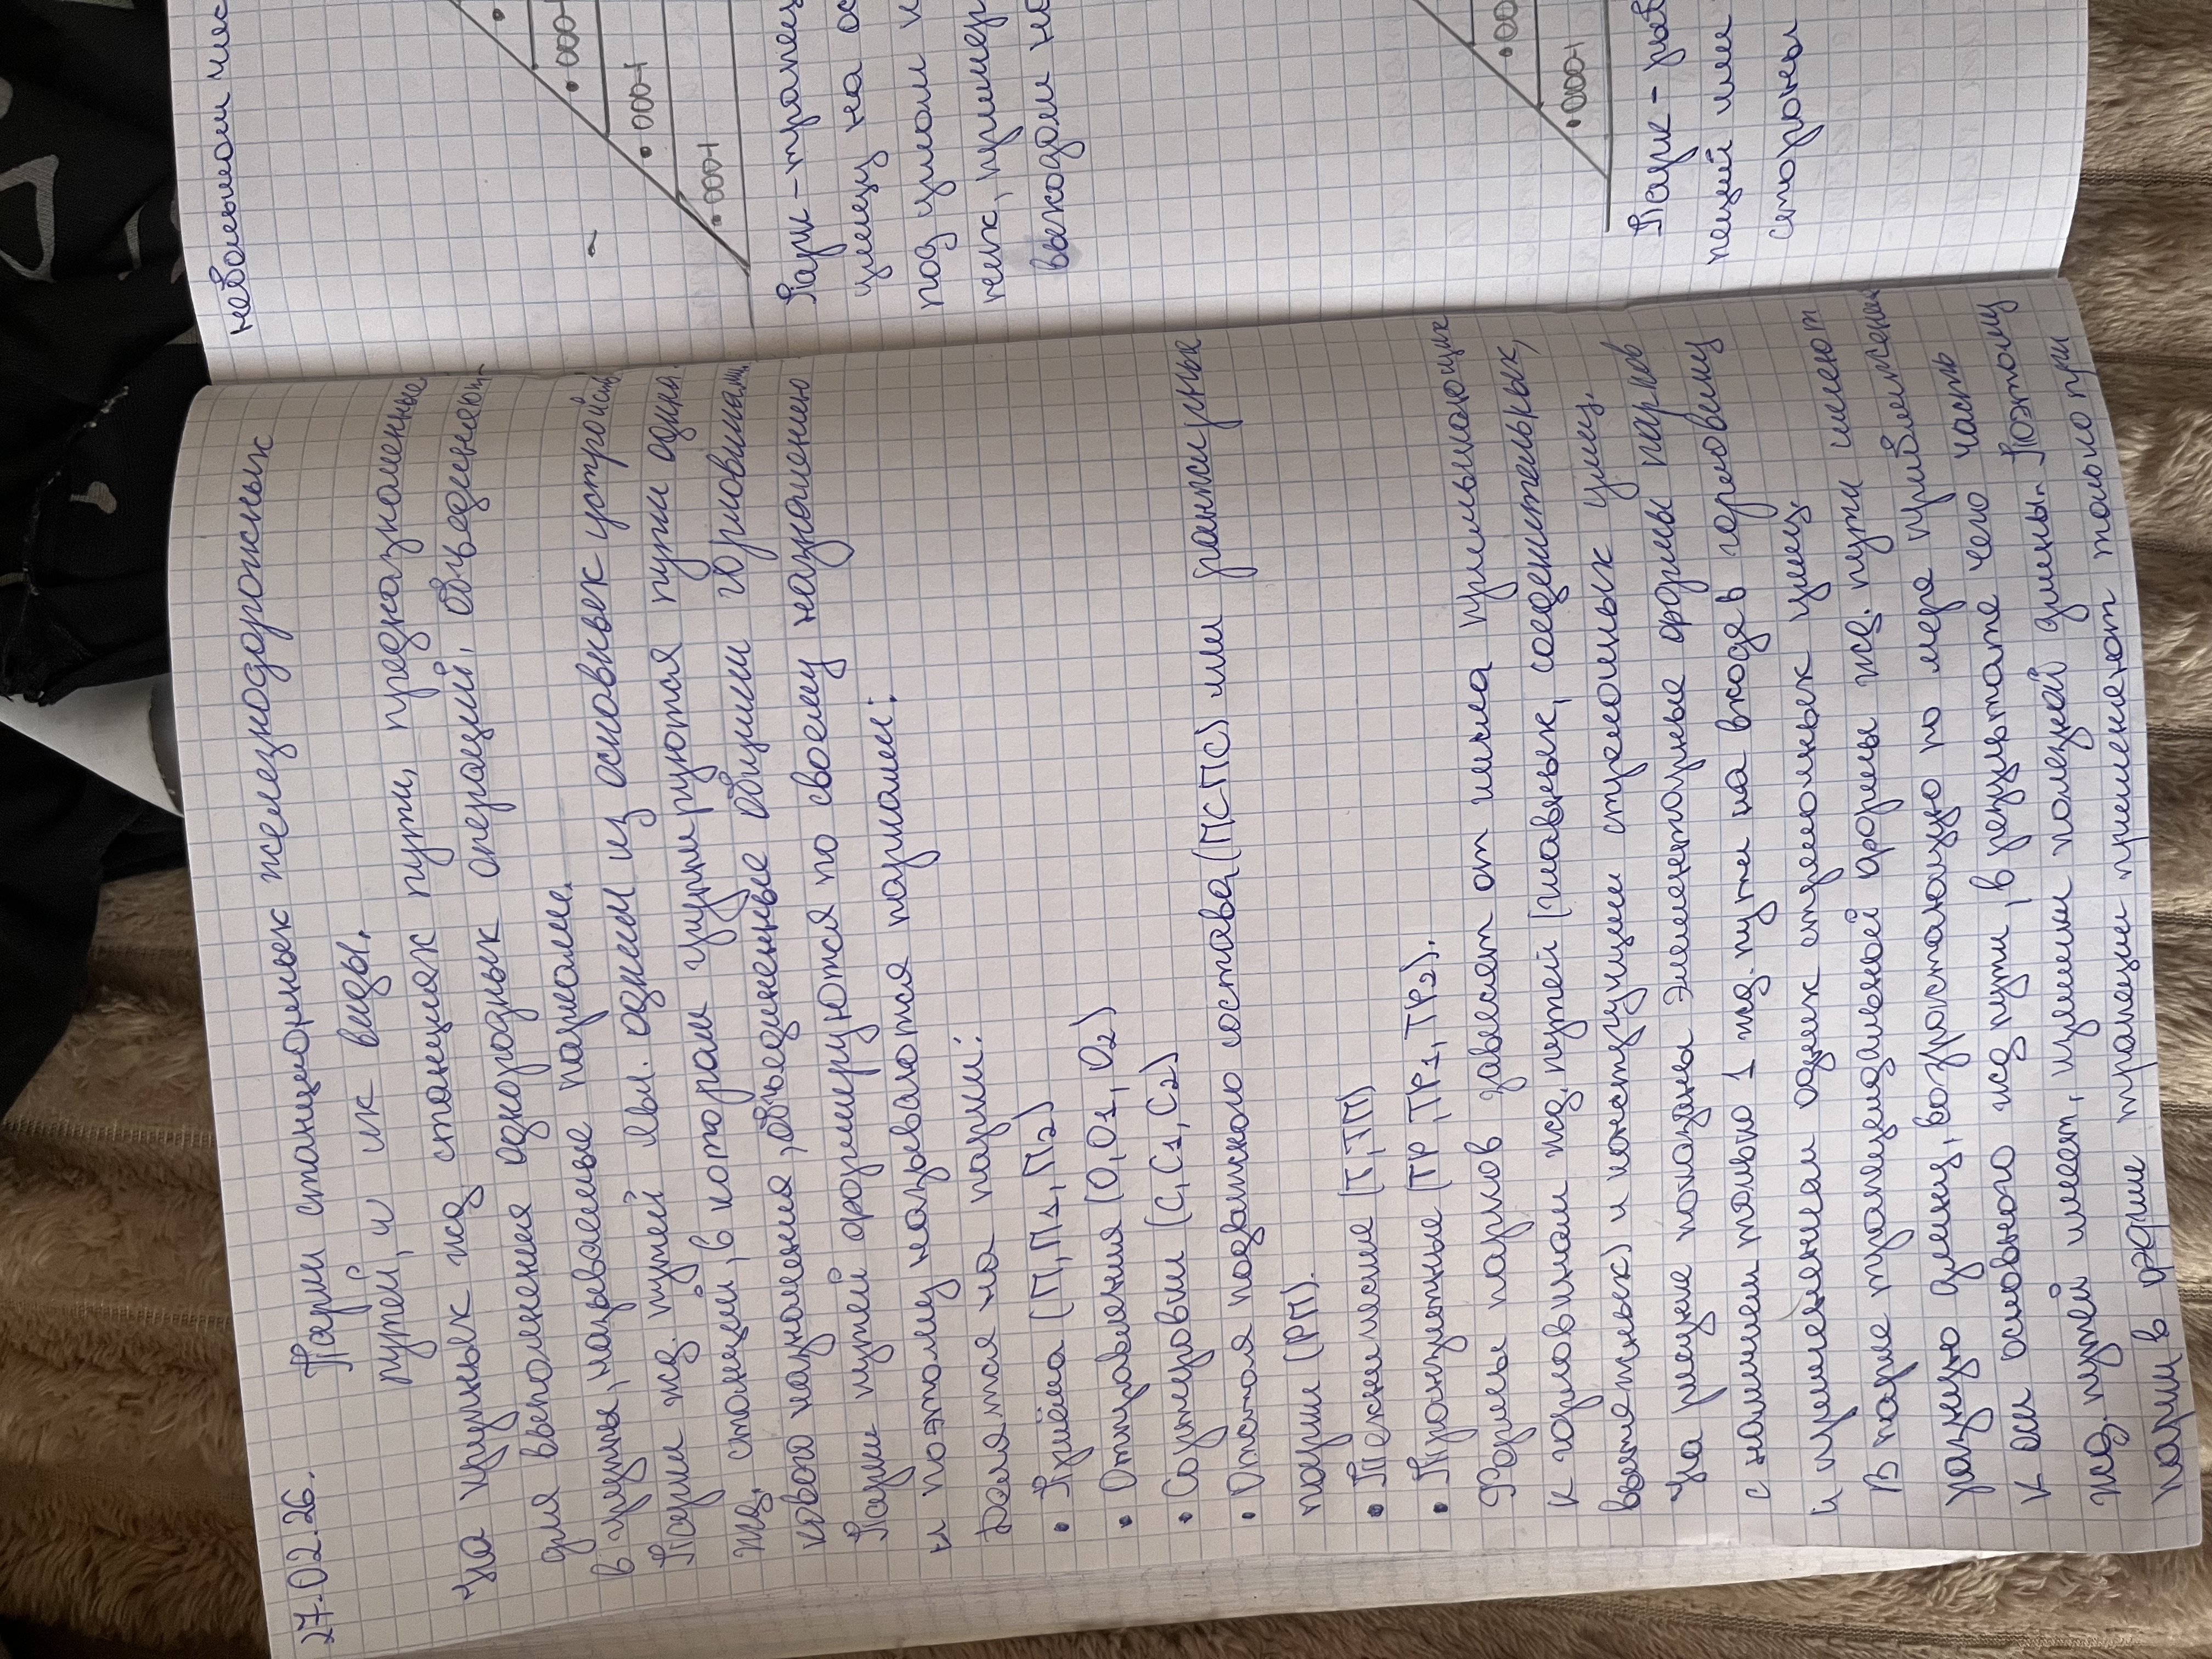 27.02.26. Парки станционных железнодорожных
путей, и их виды.
На крупных жд. станциях пути, предназначенные
для выполнения однородных операций, объединяют
в группы, называемые парками.
Парки жд. путей явл. одним из основных устройств
жд. станций, в котором группируются пути один.
кового назначения, объединенные общими горловинами.
Парки путей формируются по своему назначению
и поэтому называются парками:
Делятся на парки:
• Приёма (П, П1, П2)
• Отправления (О, О1, О2)
• Сортировки (С, С1, С2)
• Отстоя подвижного состава (ПСПС) или ранжирные
парки (РП).
• Технические (Т, ТП)
• Транзитные (ТР, ТР1, ТР2).
Формы парков зависят от числа примыкающих
к горловинам жд. путей (главных, соединительных,
вытяжных) и конструкции стрелочных улиц.
На рисунке показаны элементарные формы парков
с наличием только 1 жд. пути на входе в горловину
и применением одних стрелочных улиц.
В парке трапецеидальной формы жд. пути имеют
разную длину, возрастающую по мере приближения
к оси основного жд пути, в результате чего часть
жд. путей имеет, излишки полезной длины. Поэтому
парки в форме трапеции применяют только при
небольшом чис
Парк-трапец
улицу на ос
под углом к
нек, пример
выходом на
Парк - рыб
пеций или
стороны